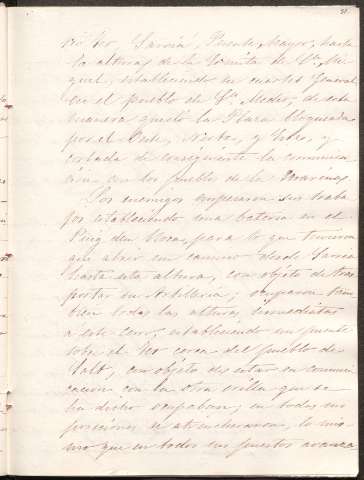 rio Ter Sarriá, Puente Mayor, hasta
la altura de la Ermita de Sn. Mi-
guel, estableciendo su cuartel General
en el pueblo de Sn. Medir, de esta
manera quedó la Plaza bloqueada
por el Este, Norte, y Oeste, y
cortada de consiguiente la comunica-
ción con los pueblos de la
Los enemigos empezaron sus traba
jos estableciendo una batería en el
Puig den Roca, para lo que tuvieron
que abrir un camino desde Sarriá
hasta esta altura, con objeto de tras
portar su Artillería; ocuparon tam
bien todas las alturas inmediatas
a este cerro, estableciendo un puente
sobre el Ter cerca del pueblo de
Salt, con objeto de estar en comuni
cación con la otra orilla que se
ha dicho ocupaban; en todas sus
posiciones se atrincheraron, lo mis
mo que en todos sus puestos avanza